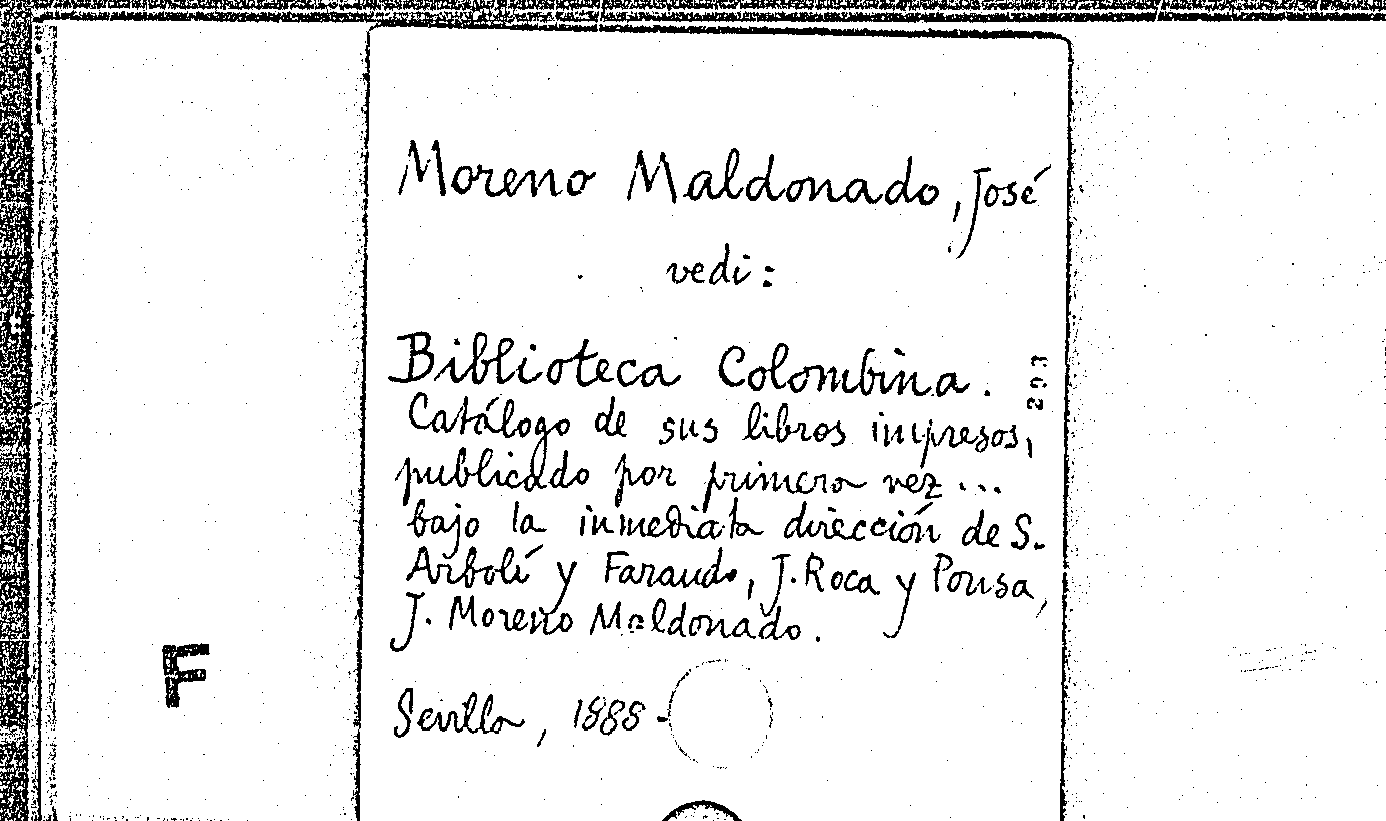 Moreno Maldonado, José
vedi:
Biblioteca Colombina.
293
Catálogo de sus libros impresos,
publicado por primera vez...
bajo la inmediata dirección de S.
Arbolí y Faraudo, J. Roca y Ponsa,
J. Moreno Maldonado.
Sevilla, 1888-
F